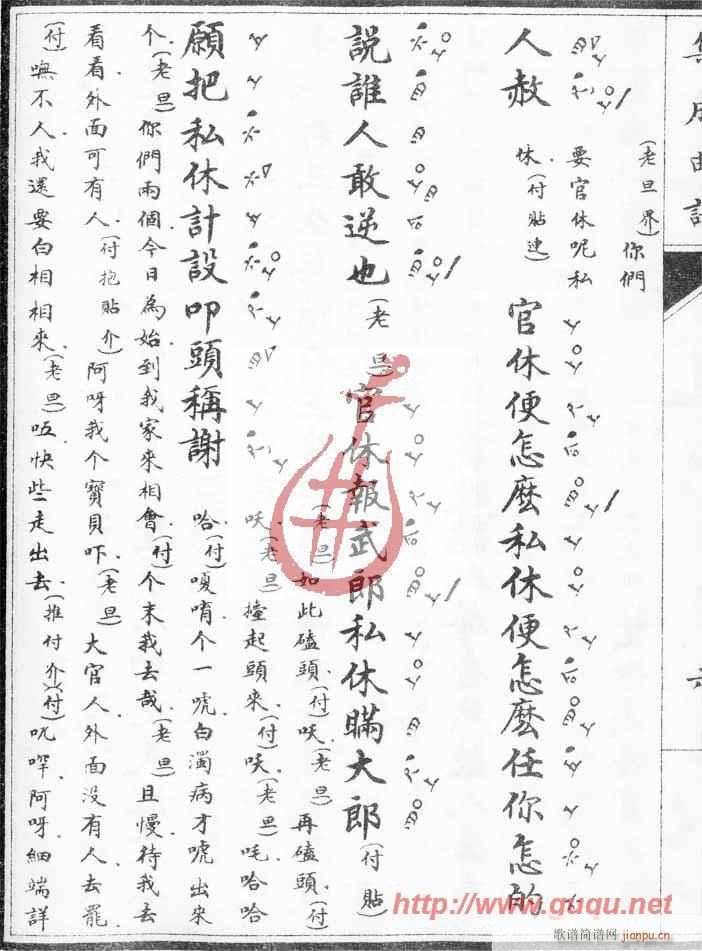 集成曲譜
人赦
(老旦界)你們
要官休呢私
休(付貼連)
官休便怎麼私休便怎麼任你怎的
說誰人敢逆也(老旦)官休報武郎私休瞞大郎(付貼)
願把私休計設叩頭稱謝
(老旦)如此磕頭(付)呋(老旦)再磕頭(付)
呋(老旦)擡起頭來(付)呋(老旦)吒哈哈
哈(付)嗄唷个一唬白濁病才唬出來
个(老旦)你們兩個今日為始到我家來相會(付)个末我去哉(老旦)且慢待我去
看看外面可有人(付抱貼介)阿呀我个寶貝吓(老旦)大官人外面沒有人去罷
(付)嘸不人我還要白相相來(老旦)呸快些走出去(推付介)(付)呒㖕阿呀細端詳
http://www.guqu.net
歌谱简谱网 jianpu.cn